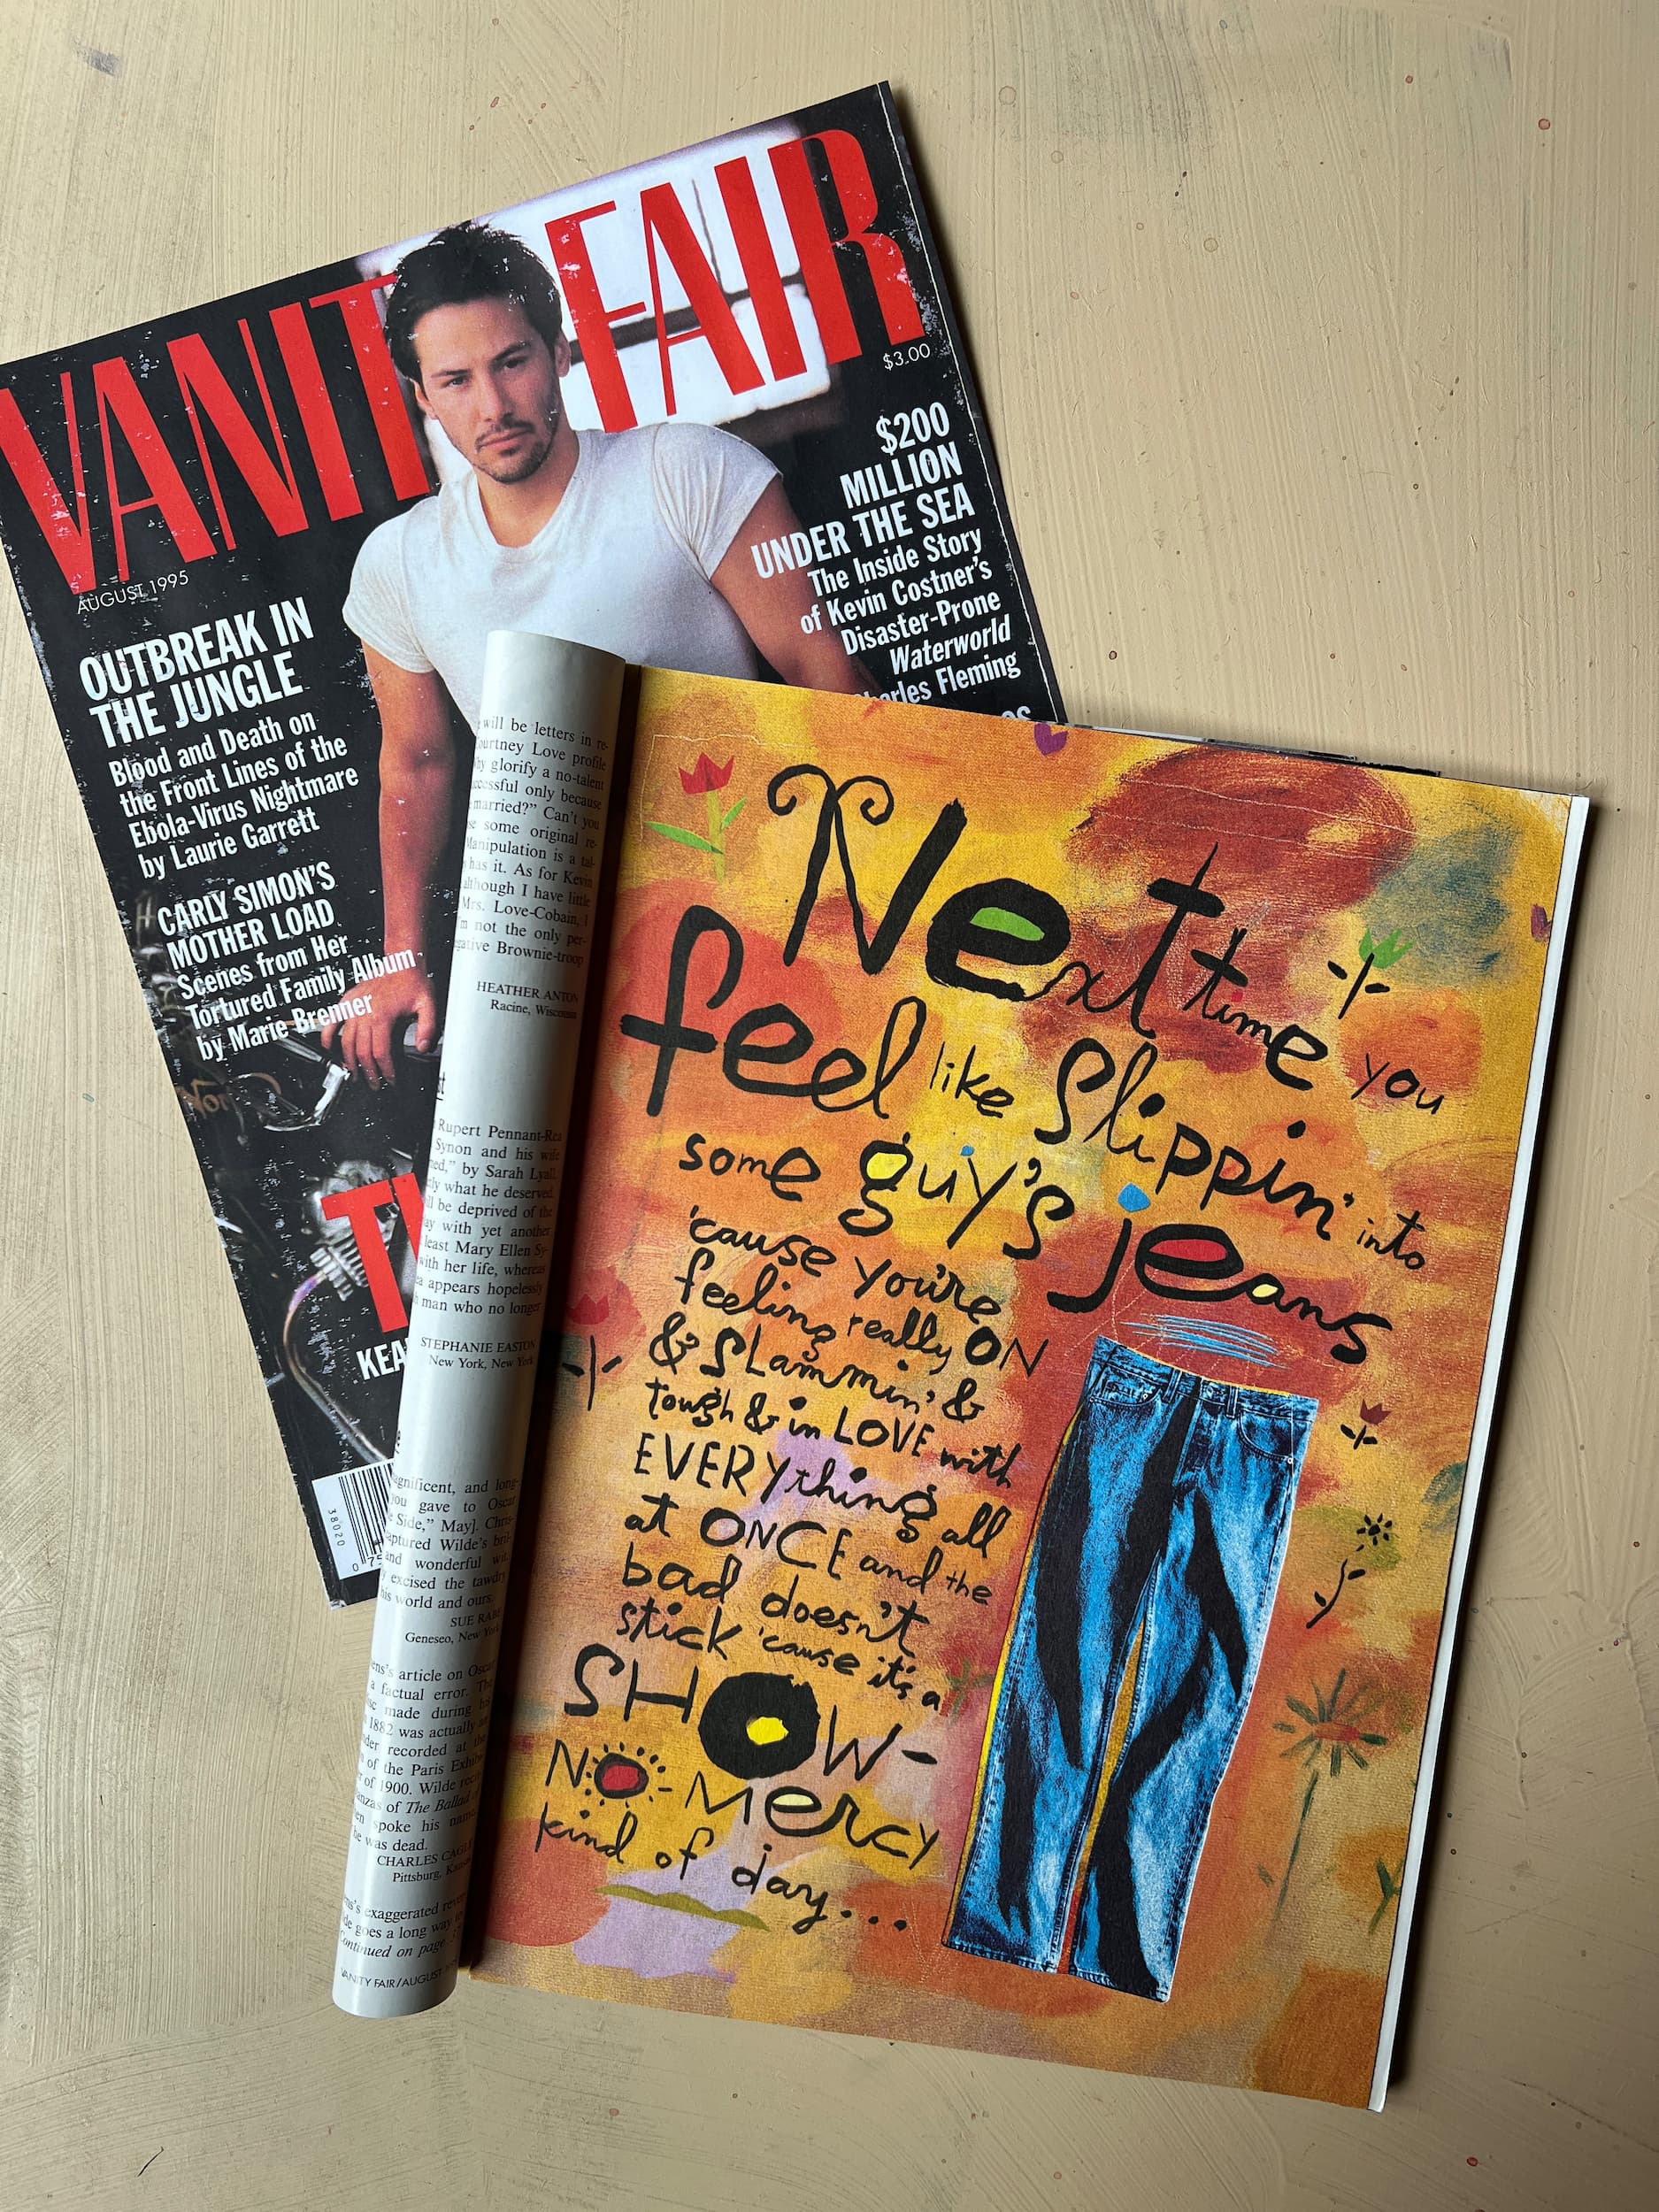 VANIT FAIR
$3.00
AUGUST 1995
OUTBREAK IN
THE JUNGLE
Blood and Death on
the Front Lines of the
Ebola-Virus Nightmare
by Laurie Garrett
CARLY SIMON'S
MOTHER LOAD
Scenes from Her
Tortured Family Album
by Marie Brenner
$200
MILLION
UNDER THE SEA
The Inside Story
of Kevin Costner's
Disaster-Prone
Waterworld
Charles Fleming
KEA
38020
will be letters in re-
Courtney Love profile
glorify a no-talent
successful only because
married?" Can't you
some original re-
Manipulation is a tal-
has it. As for Kevin
although I have little
Mrs. Love-Cobain, I
not the only per-
negative Brownie-troop
HEATHER ANTON
Racine, Wisconsin
Rupert Pennant-Rea
Synon and his wife
by Sarah Lyall
what he deserved.
be deprived of the
with yet another
least Mary Ellen Sy-
with her life, whereas
appears hopelessly
man who no longer
STEPHANIE EASTON
New York, New York
magnificent, and long-
you gave to Oscar
Side," May]. Chris-
captured Wilde's bril-
and wonderful wit,
excised the tawdry
his world and ours.
SUE
Geneseo, New York
article on Oscar
a factual error. The
made during his
1882 was actually
recorded at the
of the Paris
of 1900. Wilde
of The Ballad
spoke his name
he was dead.
CHARLES
Pittsburg, Kansas
exaggerated
goes a long way
Continued on page
VANITY FAIR/AUGUST
Next time you
feel like slippin' into
some guy's jeans
'cause you're
feeling really ON
& SLammin' &
tough & in LOVE with
EVERYthing all
at ONCE and the
bad doesn't
stick 'cause it's a
SHOW-
NO-Mercy
kind of day...